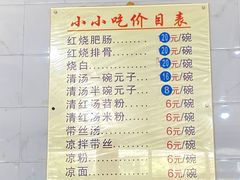 小小吃价目表
红烧肥肠........20元/碗
红烧排骨........20元/碗
烧白..............20元/碗
清汤一碗元子...16元/碗
清汤半碗元子...8元/碗
清红汤苕粉......6元/碗
清红汤米粉......6元/碗
带丝汤............6元/碗
凉拌带丝.........6元/碗
凉粉...............6元/碗
凉面...............6元/碗